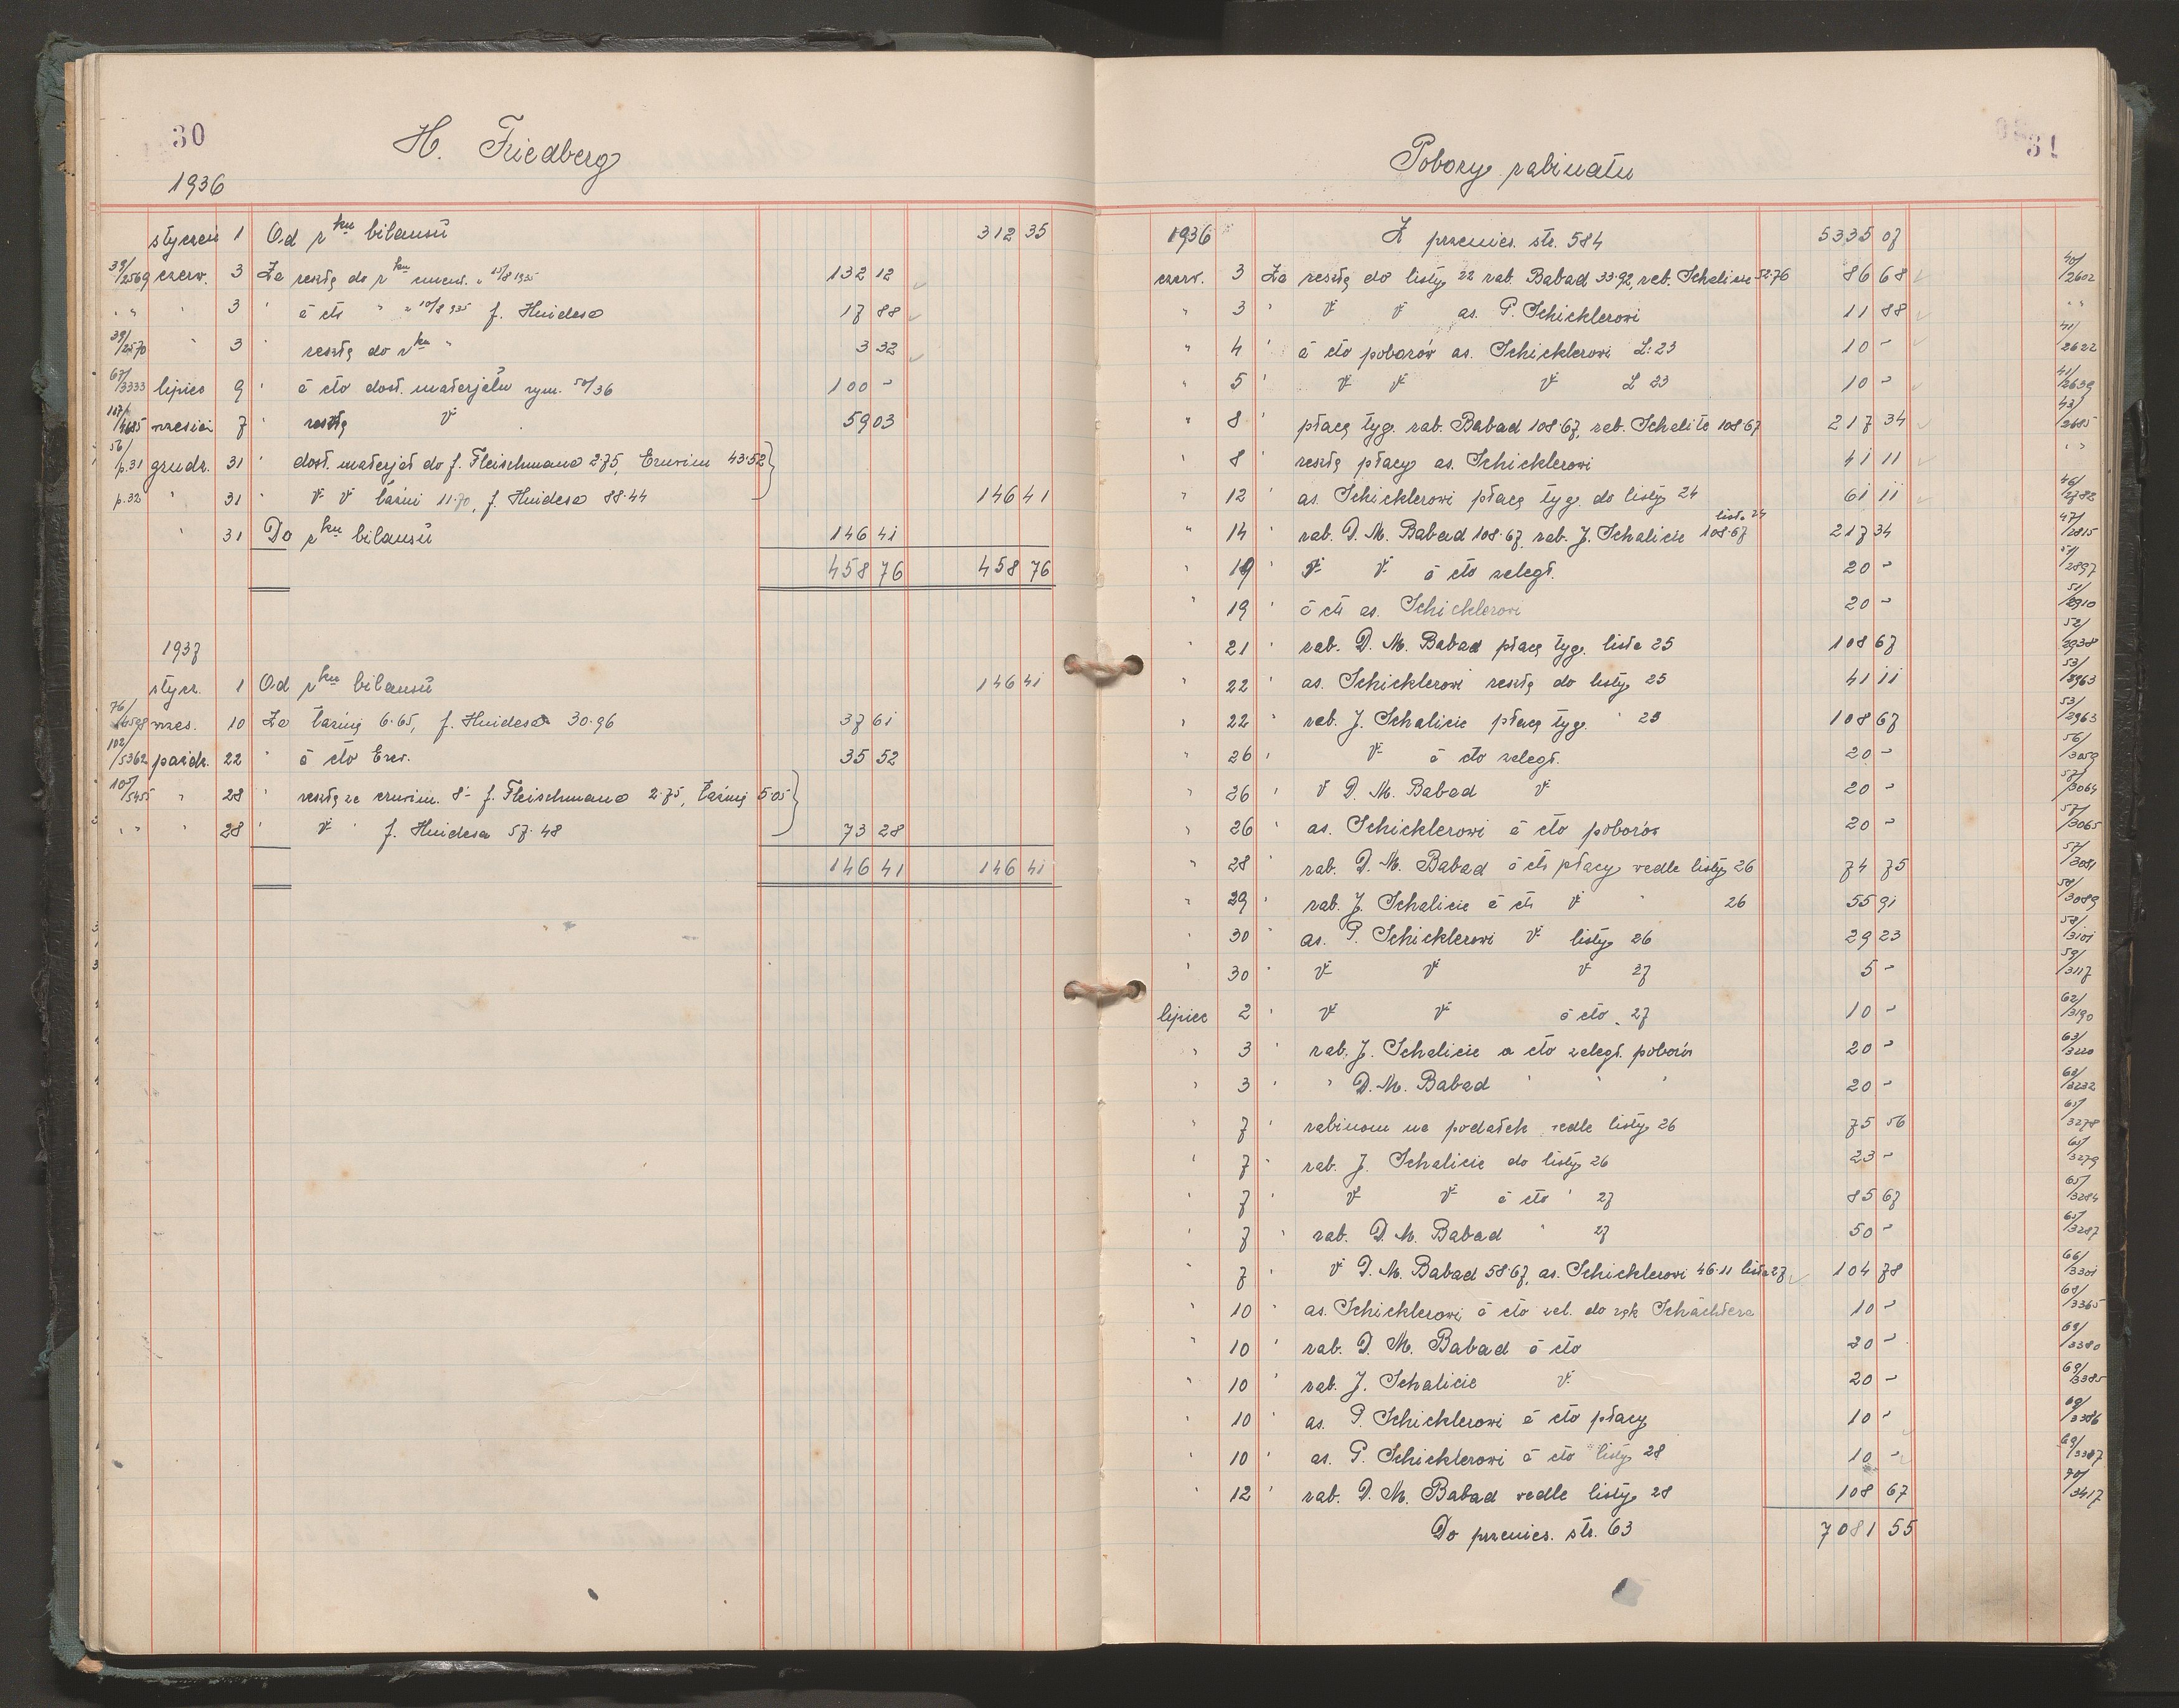 30
H. Friedberg
1936
styczeń 1 Od rku bilansu 312 35
39/2569 czerw. 3 Za resztę do rku 15/8 1935 132 12
" " " 3 " á cto " " 10/8 935 f. Huidesa 17 88
39/2570 " 3 " resztę do rku " 3 32
67/3333 lipiec 9 " á cto dost. materjału rym. 50/36 100 -
107/4685 wrzesień 7 " resztę V 59 03
56/p.31 grudz. 31 " dost. materjał do f. Fleischmana 2.75, Eruvim 43.52
p.32 " 31 " V V łaźni 11.70, f. Huidesa 88.44 146 41
" 31 Do rku bilansu 146 41
458 76 458 76
1937
stycz. 1 Od rku bilansu 146 41
76/4598 wrzes. 10 Za łaźnię 6.65, f. Huidesa 30.96 37 61
102/5362 paźdz. 22 " á cto Eruv. 35 52
105/5455 " 28 " resztę za eruvim. 8- f. Fleischmana 2.75, łaźnię 5.05
" " " 28 " V " f. Huidesa 57.48 73 28
146 41 146 41
31
Pobory rabinatu
1936 Z przenies. str. 584 5335 07
czerw. 3 Za resztę do listy 22 rab. Babad 33.92, rab. Schalicie 52.76 86 68 40/2602
" 3 " V V as. P. Schicklerowi 11 88 " "
" 4 " á cto poborów as. Schicklerowi L: 23 10 - 41/2622
" 5 " V V V L 23 10 - 41/2639
" 8 " płacę tyg. rab. Babad 108.67, rab. Schalite 108.67 217 34 43/2685
" 8 " resztę płacy as. Schicklerowi 41 11 " "
" 12 " as. Schicklerowi płacę tyg. do listy 24 61 11 46/2782
" 14 " rab. D. M. Babad 108.67, rab. J. Schalicie 108.67 lista 24 217 34 47/2815
" 19 " V V á cto zaległ. 20 - 51/2897
" 19 " á cto as. Schicklerowi 20 - 51/2910
" 21 " rab. D. M. Babad płacę tyg. lista 25 108 67 52/2938
" 22 " as. Schicklerowi resztę do listy 25 41 11 53/2963
" 22 " rab. J. Schalicie płacę tyg. " 25 108 67 53/2963
" 26 " V á cto zaległ. 20 - 56/3059
" 26 " V D. M. Babad V 20 - 57/3064
" 26 " as. Schicklerowi á cto poborów 20 - 57/3065
" 28 " rab. D. M. Babad á cto płacy wedle listy 26 74 75 57/3081
" 29 " rab. J. Schalicie á cto V " 26 55 91 58/3089
" 30 " as. P. Schicklerowi V listy 26 29 23 58/3101
" 30 " V V V 27 5 - 59/3117
lipiec 2 " V V á cto " 27 10 - 62/3190
" 3 " rab. J. Schalicie a cto zaległ. poborów 20 - 63/3220
" 3 " " D. M. Babad " " " 20 - 63/3232
" 7 " rabinom na podatek wedle listy 26 75 56 65/3278
" 7 " rab. J. Schalicie do listy 26 23 - 65/3279
" 7 " V V á cto " 27 85 67 65/3284
" 7 " rab. D. M. Babad " 27 50 - 65/3287
" 7 " V D. M. Babad 58.67, as. Schicklerowi 46.11 lista 27 104 78 66/3301
" 10 " as. Schicklerowi á cto zal. do rąk Schächtera 10 - 68/3365
" 10 " rab. D. M. Babad á cto 20 - 69/3380
" 10 " rab. J. Schalicie V 20 - 69/3385
" 10 " as. P. Schicklerowi á cto płacy 10 - 69/3386
" 10 " as. P. Schicklerowi á cto listy 28 10 - 69/3387
" 12 " rab. D. M. Babad wedle listy 28 108 67 70/3417
Do przenies. str. 63 7081 55